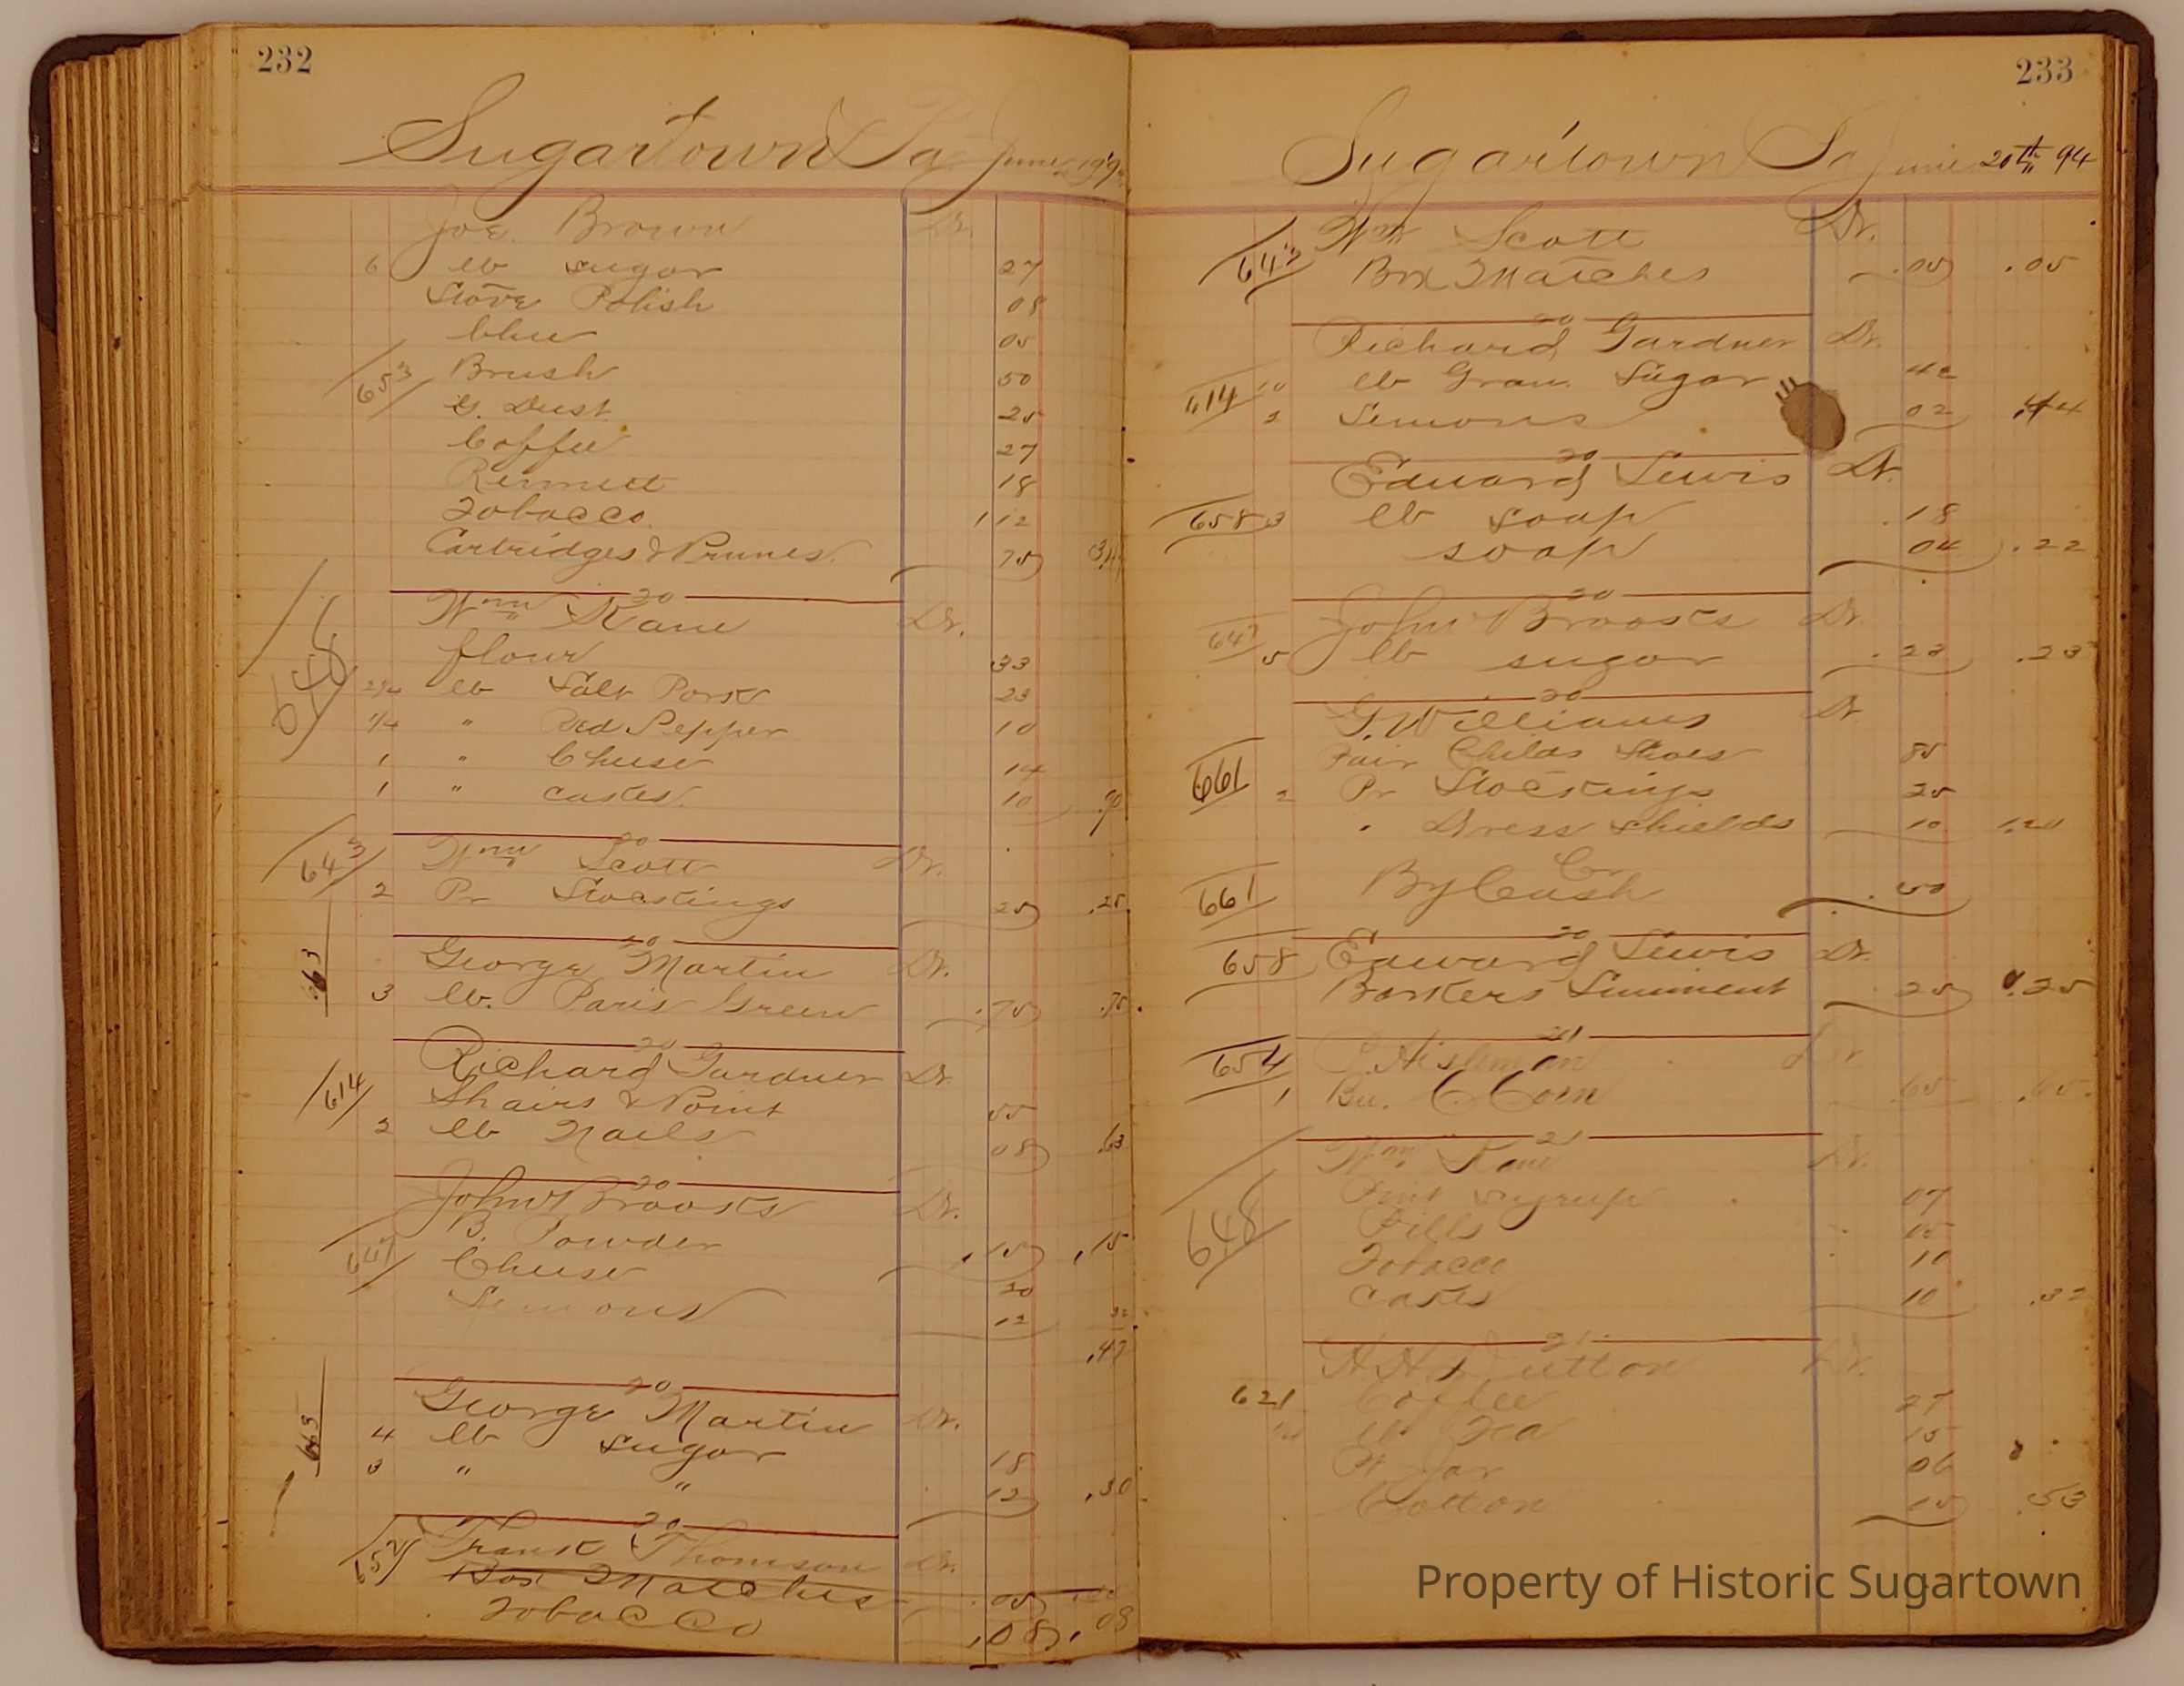 232
Sugartown Pa June 19 94
Joe. Brown Dr.
6 lb sugar 27
Stove Polish 08
blue 05
653 Brush 50
G. Dust 25
Coffee 27
Rennett 18
Tobacco 1 12
Cartridges & Prunes. 75
20
Wm Kane Dr.
648 flour 33
2 1/4 lb Salt Pork 23
1/4 " Red Pepper 10
1 " Cheese 14
1 " cakes. 10 .90
20
643 Wm Scott Dr.
2 Pr Stockings 25 .25
20
663 George Martin Dr.
3 lb. Paris Green .75 .75
20
614 Richard Gardner Dr
Shairs & Point 55
2 lb Nails 08 .63
20
John Brooks Dr.
647 B. Powder .15 .15
Cheese 20
Lemons 12 32
.47
20
663 George Martin Dr.
4 lb sugar 18
3 " " 12 .30
20
652 Frank Thomson Dr.
Box Matches .05
Tobacco .08 .08
233
Sugartown Pa June 20th 94
643 Wm Scott Dr.
Box Matches .05 .05
20
Richard Gardner Dr.
614 10 lb Gran. Sugar 42
2 Lemons 02 .44
20
Edward Lewis Dr.
658 3 lb soap .18
soap 04 .22
20
647 John Brooks Dr
5 lb sugar .23 .23
20
G. Williams Dr
661 Pair Childs Shoes 85
2 Pr Stockings 25
" Dress Shields 10 1.20
Cr.
661 By Cash .50
20
658 Edward Lewis Dr.
Barkers Liniment .25 .25
21
654 Dr
1 Bu. C. Corn .65 .65
21
Wm Kane Dr.
648 Pint syrup 07
Pills 05
Tobacco 10
cakes 10 .32
21
H.H. Dutton Dr.
621 Coffee 27
1/4 lb Tea 15
Jar 06
Cotton 15 .53
Property of Historic Sugartown